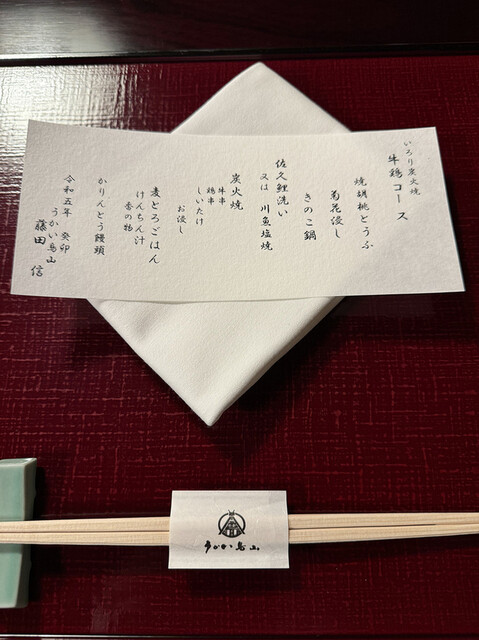 いろり炭火焼
牛鶏コース
焼胡桃とうふ
菊花浸し
きのこ鍋
佐久鯉洗い
又は 川魚塩焼
炭火焼
牛串
鶏串
しいたけ
お浸し
麦とろごはん
けんちん汁
香の物
かりんとう饅頭
令和五年 癸卯
うかい鳥山
藤田 信
うかい鳥山